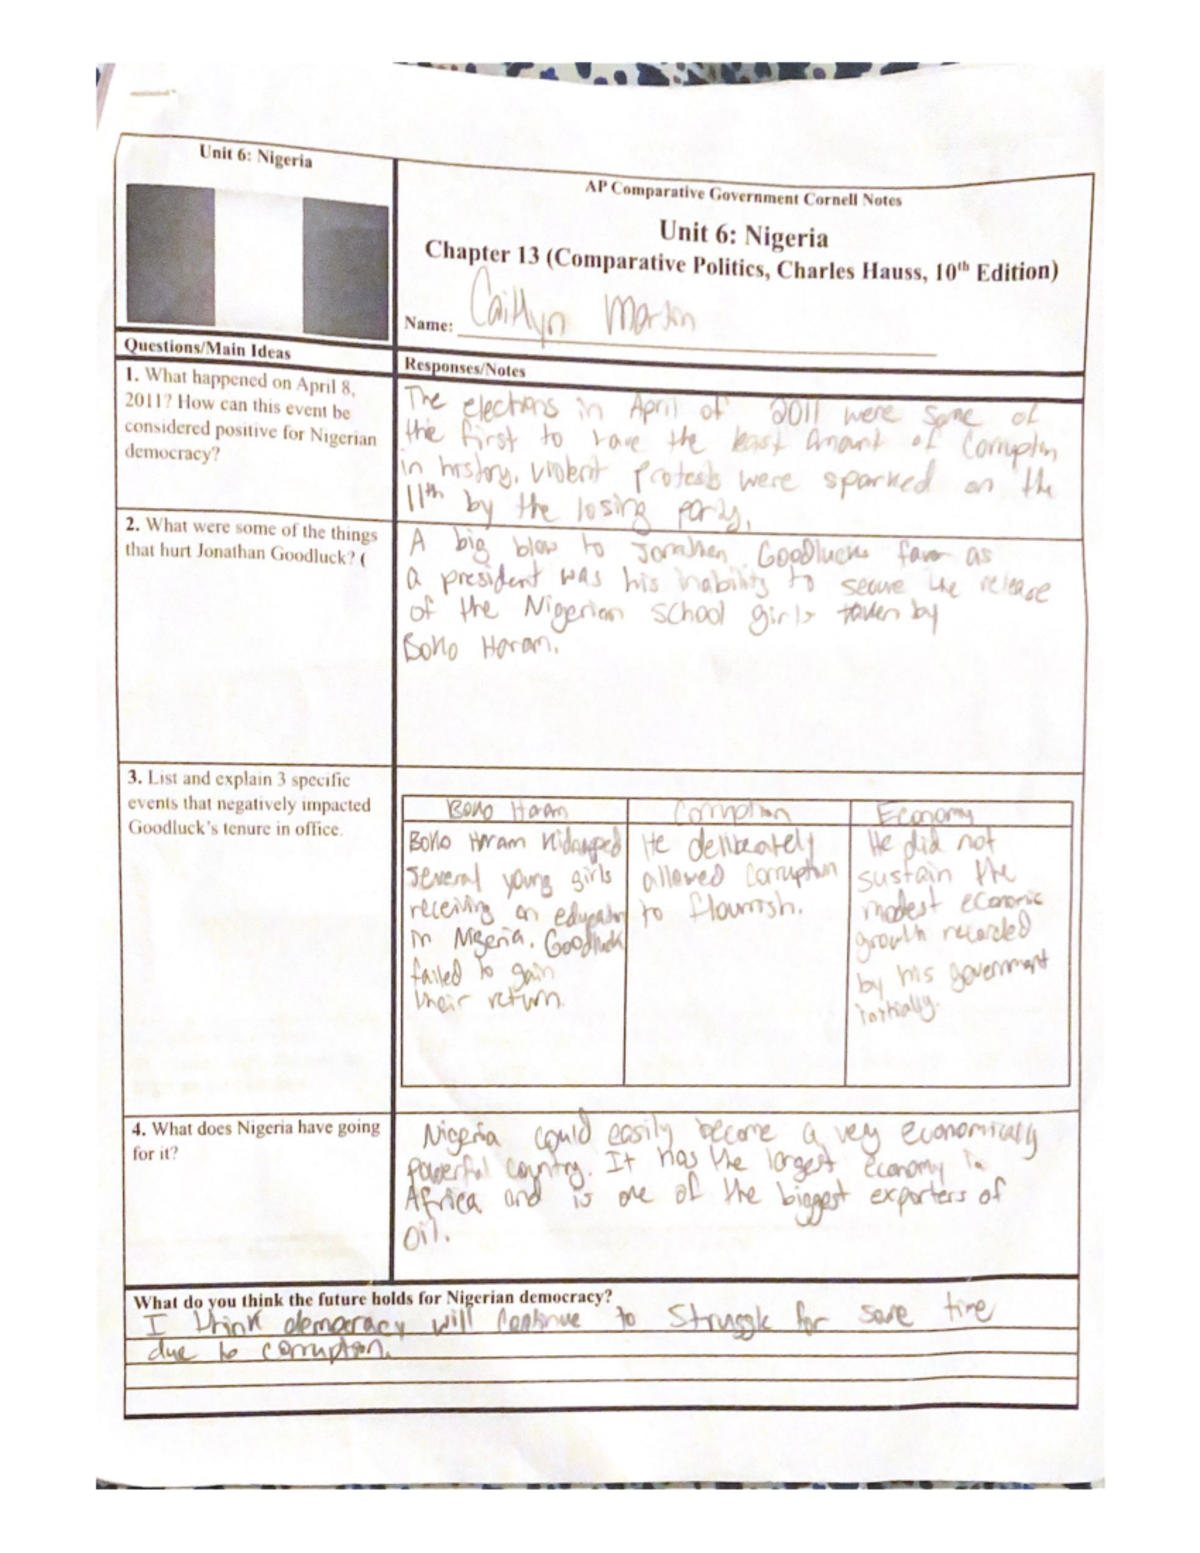 Unit 6: Nigeria
AP Comparative Government Cornell Notes
Unit 6: Nigeria
Chapter 13 (Comparative Politics, Charles Hauss, 10th Edition)
Name: Caitlyn
Questions/Main Ideas
Responses/Notes
1. What happened on April 8,
2011? How can this event be
considered positive for Nigerian
democracy?
The elections in April of 2011 were some of
the first to have the least amount of corruption
in history, violent protests were sparked on the
11th by the losing party.
2. What were some of the things
that hurt Jonathan Goodluck? (
A big blow to Jonathan Goodlucks favor as
a president was his inability to secure the release
of the Nigerian school girls taken by
Boko Haram.
3. List and explain 3 specific
events that negatively impacted
Goodluck's tenure in office.
Boko Haram
Boko Haram kidnapped
several young girls
receiving an education
in Nigeria. Goodluck
failed to gain
their return.
Corruption
He delibeately
allowed corruption
to flourish.
Economy
He did not
sustain the
modest economic
growth recorded
by his government
initially.
4. What does Nigeria have going
for it?
Nigeria could easily become a very economically
powerful country. It has the largest economy in
Africa and is one of the biggest exporters of
oil.
What do you think the future holds for Nigerian democracy?
I think democracy will continue to struggle for some time
due to corruption.